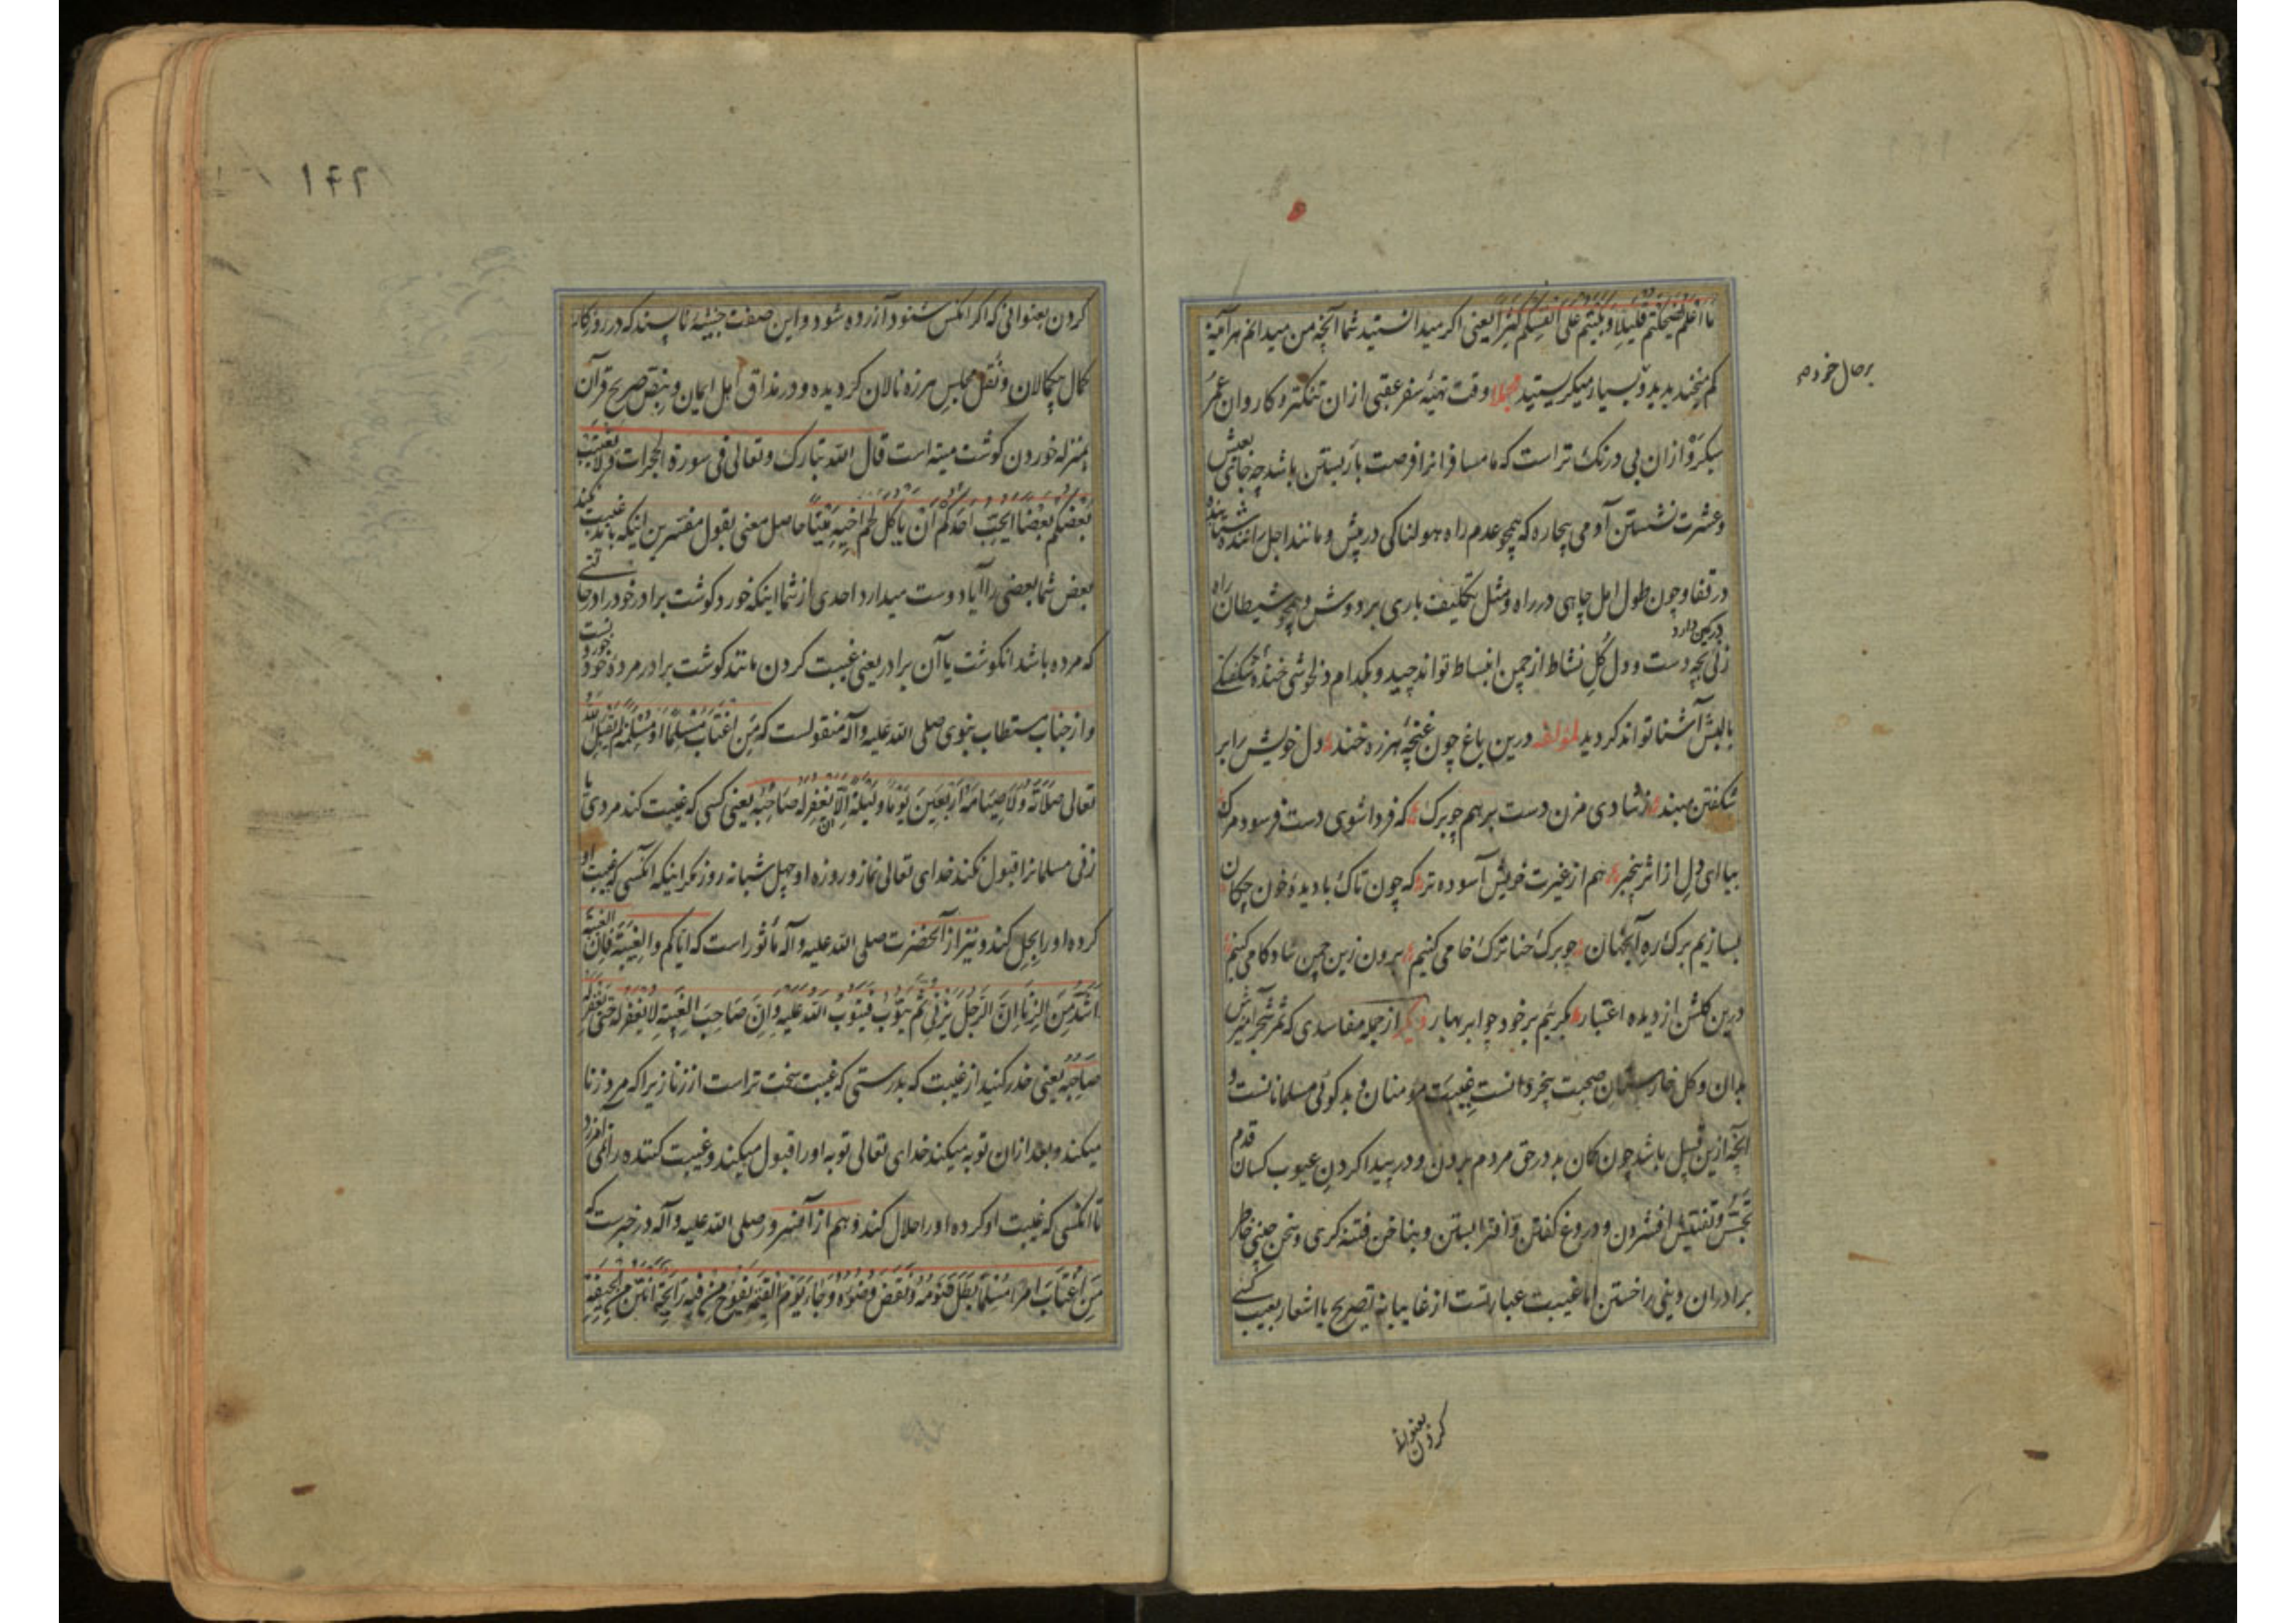 ما اعلم لضحکتم قلیلا و لبکیتم علی انفسکم کثیرا یعنی اگر میدانستید شما آنچه من میدانم هرآینه
کم میخندیدید و بسیار میکریستید مجملا وقت تهیهٔ سفر عقبی ازان تنکتر و کاروان عمر
بر حال خود م
سبکرو ازان بی درنک تر است که ما مسافرانرا فرصت بار بستن باشد چه جای بعیش
و عشرت نشستن آدمی بیچاره که همچو عدم راه هولناکی در پیش و مانند اجل
در قفا و چون طول امل چاهی در راه و مثل تکلیف باری بر دوش و همچو شیطان راه
زنی در کمین دارد بچه دست و دل کل نشاط از چمن انبساط تواند چید و بکدام دلخوشی خندهٔ شکفتگی
بالبش آشنا تواند کردید لمؤلفه درین باغ چون غنچهٔ هرزه خند دل خویش را بر
شکفتن مبند ز شادی مزن دست بر هم چو برک که فردا شوی دست فرسود مرک
بیا ای دل از اثر بیخبر هم از غیرت خویش آسوده تر که چون تاک با دیدهٔ خون چکان
بسازیم برک ره آنجهان چو برک حنا ترک خامی کنیم برون زین چمن شادکامی کنیم
درین کلشن از دیده اعتبار بکرییم بر خود چو ابر بهار دیگر از جمله مفاسدی که ثمر شجر آمیزش
بدان و کل خارستان صحبت بیخردانست غیبت مؤمنان و بدکوئی مسلمانانست و
آنچه ازین قبیل باشد چون کمان بد در حق مردم بردن و در پیدا کردن عیوب کسان قدم
تجسس و تفتیش افشردن و دروغ کفتن و افترا بستن و بناخن فتنه کری و سخن چینی خاطر
برادران دینی را خستن اما غیبت عبارتست از غایبانه تصریح یا اشعار بعیب کسی
کردن بعنوانی
۱۴۲
کردن بعنوانی که اکر آنکس شنود آزرده شود و این صفت خبیثهٔ ناپسند که در روزکار
کمال بیکمالان و نقل مجلس هرزه نالان کردیده و در مذاق اهل ایمان و بنص صریح قرآن
بمنزله خوردن کوشت میته است قال الله تبارک و تعالی فی سورة الحجرات و لا یغتب
بعضکم بعضا ایحب احدکم ان یاکل لحم اخیه میتا حاصل معنی بقول مفسرین اینکه باید غیبت نکند
بعض شما بعضی را آیا دوست میدارد احدی از شما اینکه خورد کوشت برادر خود را در حالتی
که مرده باشد آنکوشت یا آن برادر یعنی غیبت کردن مانند کوشت برادر مردهٔ خود خوردنست
و از جناب مستطاب نبوی صلی الله علیه و آله منقولست که من اغتاب مسلما او مسلمة لم یقبل الله
تعالی صلاته و لا صیامه اربعین یوما و لیلة الا ان یغفر له صاحبه یعنی کسی که غیبت کند مردی یا
زنی مسلمانرا قبول نکند خدای تعالی نماز و روزه او چهل شبانه روز مکر اینکه آنکسی که غیبت او
کرده او را بحل کند و نیز از آنحضرت صلی الله علیه و آله ماثور است که ایاکم و الغیبة فان الغیبة
اشد من الزنا ان الرجل یزنی ثم یتوب فیتوب الله علیه و ان صاحب الغیبة لا یغفر له حتی یغفر له
صاحبه یعنی حذر کنید از غیبت که بدرستی که غیبت سخت تر است از زنا زیرا که مرد زنا
میکند و بعد ازان توبه میکند خدای تعالی توبه او را قبول میکند و غیبت کننده را نمی آمرزد
تا آنکسی که غیبت او کرده او را حلال کند و هم از آنسرور صلی الله علیه و آله در خبرست که
من اغتاب امرا مسلما بطل صومه و نقض وضوءه و جاء یوم القیمة یفوح من فیه رایحة انتن من الجیفة